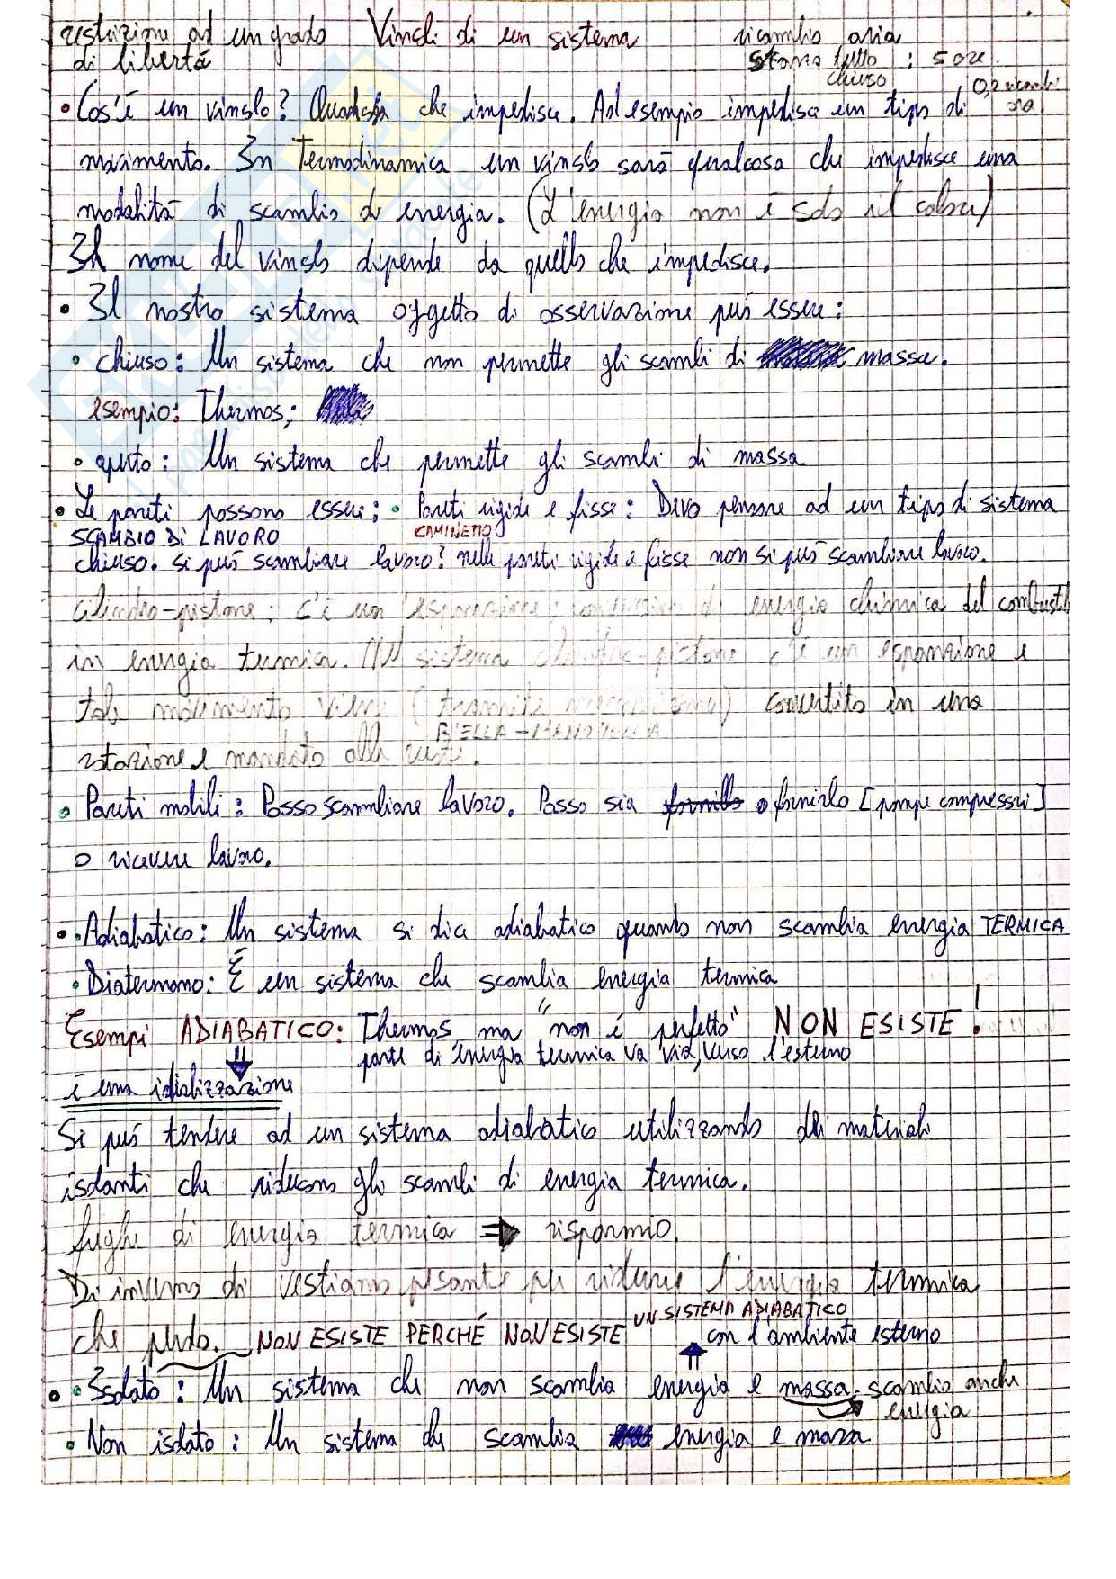 restrizione ad un grado Vincoli di un sistema ricambio aria
di libertà stanza tutto : 5 ore
chiuso 0,2 ricambi
• Cos'è un vincolo? Qualcosa che impedisce. Ad esempio impedisce un tipo di
movimento. In Termodinamica un vincolo sarà qualcosa che impedisce una
modalità di scambio di energia. (L'energia non è solo il calore)
Il nome del vincolo dipende da quello che impedisce.
• Il nostro sistema oggetto di osservazione può essere:
• chiuso: Un sistema che non permette gli scambi di massa.
esempio: Thermos;
• aperto: Un sistema che permette gli scambi di massa
• Le pareti possono essere; • Pareti rigide e fisse: Devo pensare ad un tipo di sistema
SCAMBIO DI LAVORO CAMINETTO
chiuso. si può scambiare lavoro? nelle pareti rigide e fisse non si può scambiare lavoro.
cilindro-pistone; c'è un espansione: conversione di energia chimica del combustib
in energia termica. Nel sistema cilindro-pistone c'è un espansione e
tale movimento viene (tramite meccanismo) convertito in una
BIELLA-MANOVELLA
rotazione e mandato alle ruote.
• Pareti mobili: Posso scambiare lavoro. Posso sia fornirlo o fornirlo [pompe compressori]
o ricevere lavoro.
• • Adiabatico: Un sistema si dice adiabatico quando non scambia energia TERMICA
• Diatermano: È un sistema che scambia energia termica
Esempi ADIABATICO: Thermos, ma "non è perfetto" NON ESISTE!
parte di energia termica va via, verso l'esterno
è una idializzazione
Si può tendere ad un sistema adiabatico utilizzando dei materiali
isolanti che riducono gli scambi di energia termica.
fughe di energia termica ⇒ risparmio.
Di inverno ci vestiamo pesante per ridurre l'energia termica
UN SISTEMA ADIABATICO
che perdo. NON ESISTE PERCHÉ NON ESISTE con l'ambiente esterno
• • Isolato: Un sistema che non scambia energia e massa - scambio anche
energia
• Non isolato: Un sistema che scambia energia e massa